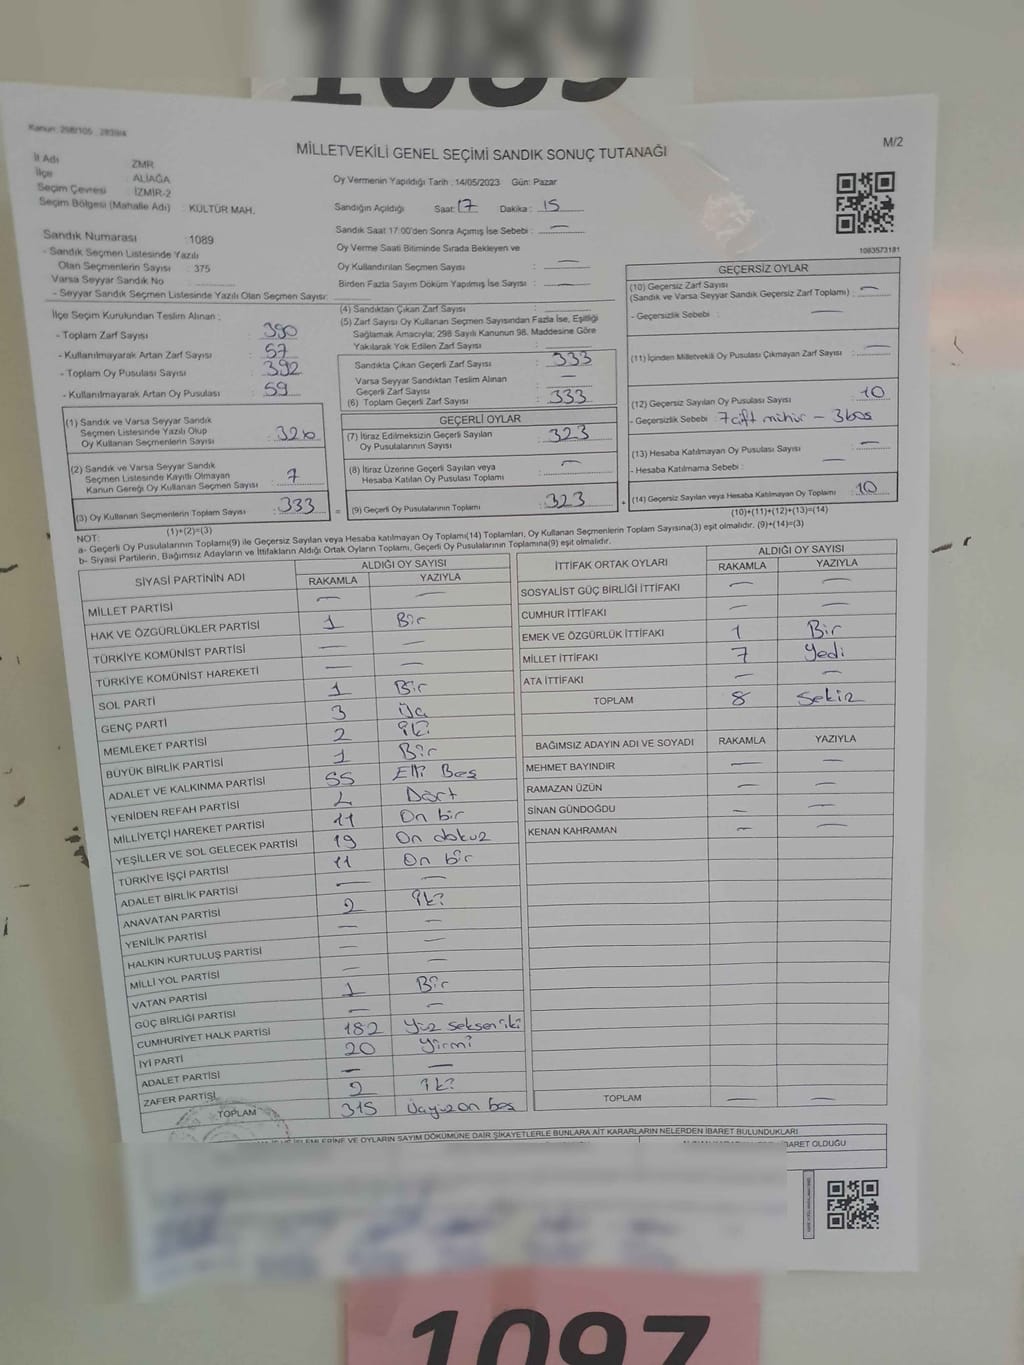 1089
1089
Kanun: 298/105 , 2839/4
M/2
MİLLETVEKİLİ GENEL SEÇİMİ SANDIK SONUÇ TUTANAĞI
İl Adı ZMR
İlçe ALİAĞA
Seçim Çevresi İZMİR-2
Seçim Bölgesi (Mahalle Adı) : KÜLTÜR MAH.
Oy Vermenin Yapıldığı Tarih : 14/05/2023 Gün: Pazar
Sandığın Açıldığı Saat: 17 Dakika : 15
Sandık Saat 17:00'den Sonra Açımış İse Sebebi : —
Oy Verme Saati Bitiminde Sırada Bekleyen ve
Oy Kullandırılan Seçmen Sayısı : —
Birden Fazla Sayım Döküm Yapılmış İse Sayısı : —
Sandık Numarası : 1089
- Sandık Seçmen Listesinde Yazılı
Olan Seçmenlerin Sayısı : 375
Varsa Seyyar Sandık No
- Seyyar Sandık Seçmen Listesinde Yazılı Olan Seçmen Sayısı:
1083573181
İlçe Seçim Kurulundan Teslim Alınan ;
- Toplam Zarf Sayısı : 390
- Kullanılmayarak Artan Zarf Sayısı : 57
- Toplam Oy Pusulası Sayısı : 392
- Kullanılmayarak Artan Oy Pusulası : 59
(1) Sandık ve Varsa Seyyar Sandık
Seçmen Listesinde Yazılı Olup
Oy Kullanan Seçmenlerin Sayısı : 326
(2) Sandık ve Varsa Seyyar Sandık
Seçmen Listesinde Kayıtlı Olmayan
Kanun Gereği Oy Kullanan Seçmen Sayısı : 7
(3) Oy Kullanan Seçmenlerin Toplam Sayısı : 333
(1)+(2)=(3)
(4) Sandıktan Çıkan Zarf Sayısı :
(5) Zarf Sayısı Oy Kullanan Seçmen Sayısından Fazla İse, Eşitliği
Sağlamak Amacıyla; 298 Sayılı Kanunun 98. Maddesine Göre
Yakılarak Yok Edilen Zarf Sayısı :
Sandıkta Çıkan Geçerli Zarf Sayısı : 333
Varsa Seyyar Sandıktan Teslim Alınan
Geçerli Zarf Sayısı : —
(6) Toplam Geçerli Zarf Sayısı : 333
GEÇERLİ OYLAR
(7) İtiraz Edilmeksizin Geçerli Sayılan
Oy Pusulalarının Sayısı : 323
(8) İtiraz Üzerine Geçerli Sayılan veya
Hesaba Katılan Oy Pusulası Toplamı : —
= (9) Geçerli Oy Pusulalarının Toplamı : 323
GEÇERSİZ OYLAR
(10) Geçersiz Zarf Sayısı
(Sandık ve Varsa Seyyar Sandık Geçersiz Zarf Toplamı) : —
- Geçersizlik Sebebi : —
(11) İçinden Milletvekili Oy Pusulası Çıkmayan Zarf Sayısı : —
(12) Geçersiz Sayılan Oy Pusulası Sayısı : 10
- Geçersizlik Sebebi : 7 çift mühür – 3 boş
(13) Hesaba Katılmayan Oy Pusulası Sayısı : —
- Hesaba Katılmama Sebebi : —
+ (14) Geçersiz Sayılan veya Hesaba Katılmayan Oy Toplamı : 10
(10)+(11)+(12)+(13)=(14)
NOT:
a- Geçerli Oy Pusulalarının Toplamı(9) ile Geçersiz Sayılan veya Hesaba katılmayan Oy Toplamı(14) Toplamları, Oy Kullanan Seçmenlerin Toplam Sayısına(3) eşit olmalıdır. (9)+(14)=(3)
b- Siyasi Partilerin, Bağımsız Adayların ve İttifakların Aldığı Ortak Oyların Toplamı, Geçerli Oy Pusulalarının Toplamına(9) eşit olmalıdır.
SİYASİ PARTİNİN ADI ALDIĞI OY SAYISI
RAKAMLA YAZIYLA
MİLLET PARTİSİ — —
HAK VE ÖZGÜRLÜKLER PARTİSİ 1 Bir
TÜRKİYE KOMÜNİST PARTİSİ — —
TÜRKİYE KOMÜNİST HAREKETİ — —
SOL PARTİ 1 Bir
GENÇ PARTİ 3 üç
MEMLEKET PARTİSİ 2 iki
BÜYÜK BİRLİK PARTİSİ 1 Bir
ADALET VE KALKINMA PARTİSİ 55 Elli Beş
YENİDEN REFAH PARTİSİ 4 Dört
MİLLİYETÇİ HAREKET PARTİSİ 11 On bir
YEŞİLLER VE SOL GELECEK PARTİSİ 19 On dokuz
TÜRKİYE İŞÇİ PARTİSİ 11 On bir
ADALET BİRLİK PARTİSİ — —
ANAVATAN PARTİSİ 2 iki
YENİLİK PARTİSİ — —
HALKIN KURTULUŞ PARTİSİ — —
MİLLİ YOL PARTİSİ — —
VATAN PARTİSİ 1 Bir
GÜÇ BİRLİĞİ PARTİSİ — —
CUMHURİYET HALK PARTİSİ 182 Yüz seksen iki
İYİ PARTİ 20 Yirmi
ADALET PARTİSİ — —
ZAFER PARTİSİ 2 iki
TOPLAM 315 Üçyüzon beş
İTTİFAK ORTAK OYLARI ALDIĞI OY SAYISI
RAKAMLA YAZIYLA
SOSYALİST GÜÇ BİRLİĞİ İTTİFAKI — —
CUMHUR İTTİFAKI — —
EMEK VE ÖZGÜRLÜK İTTİFAKI 1 Bir
MİLLET İTTİFAKI 7 Yedi
ATA İTTİFAKI — —
TOPLAM 8 Sekiz
BAĞIMSIZ ADAYIN ADI VE SOYADI RAKAMLA YAZIYLA
MEHMET BAYINDIR — —
RAMAZAN ÜZÜN — —
SİNAN GÜNDOĞDU — —
KENAN KAHRAMAN — —
TOPLAM — —
İŞLEMLERİNE VE OYLARIN SAYIM DÖKÜMÜNE DAİR ŞİKAYETLERLE BUNLARA AİT KARARLARIN NELERDEN İBARET BULUNDUKLARI
İBARET OLDUĞU
1097